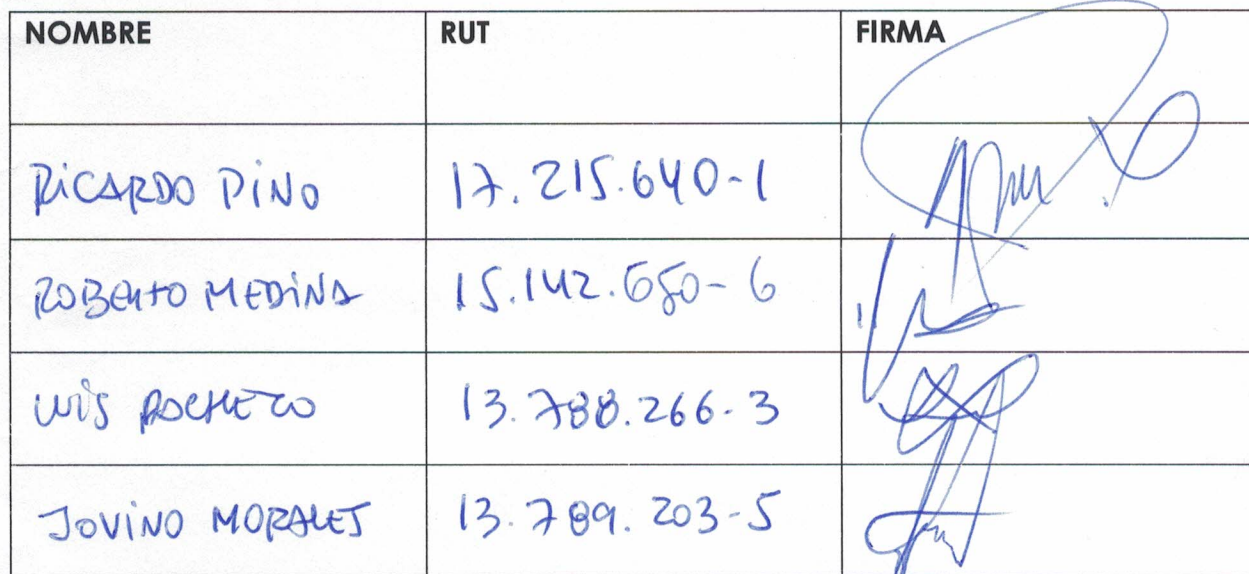 NOMBRE RUT FIRMA
RICARDO PINO 17.215.640-1
ROBERTO MEDINA 15.142.650-6
LUIS PACHECO 13.788.266-3
JOVINO MORALES 13.789.203-5